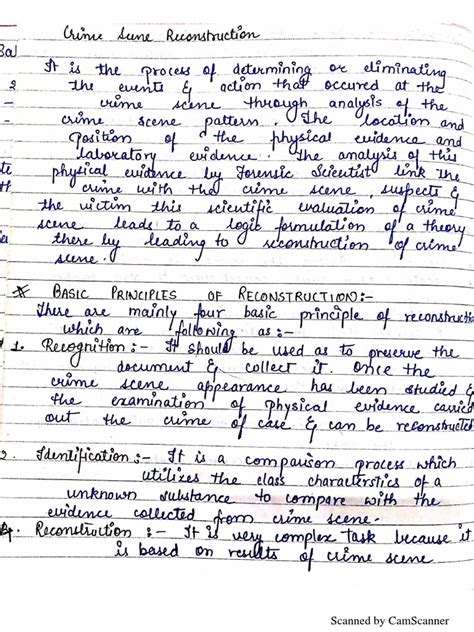 Crime Sune Reconstruction
3a)
It is the process of determining or eliminating
2 the events & action that occured at the
- crime scene through analysis of the
- crime scene pattern. The location and
position of the physical evidence and
laboratory evidence. The analysis of this
te physical evidence by Forensic Scientist link the
crime with the crime scene, suspects &
the victim this scientific evaluation of crime
scene leads to a logic formulation of a theory
there by leading to reconstruction of crime
scene.
* BASIC PRINCIPLES OF RECONSTRUCTION:-
There are mainly four basic principle of reconstructio
which are following as :-
1. Recognition :- It should be used as to preserve the
document & collect it. Once the
crime scene appearance has been studied &
the examination of physical evidence carried
out the crime of case & can be reconstructed
2. Identification :- It is a comparison process which
utilizes the class characterstics of a
unknown substance to compare with the
evidence collected from crime scene.
4. Reconstruction :- It is very complex task because it
is based on results of crime scene
Scanned by CamScanner